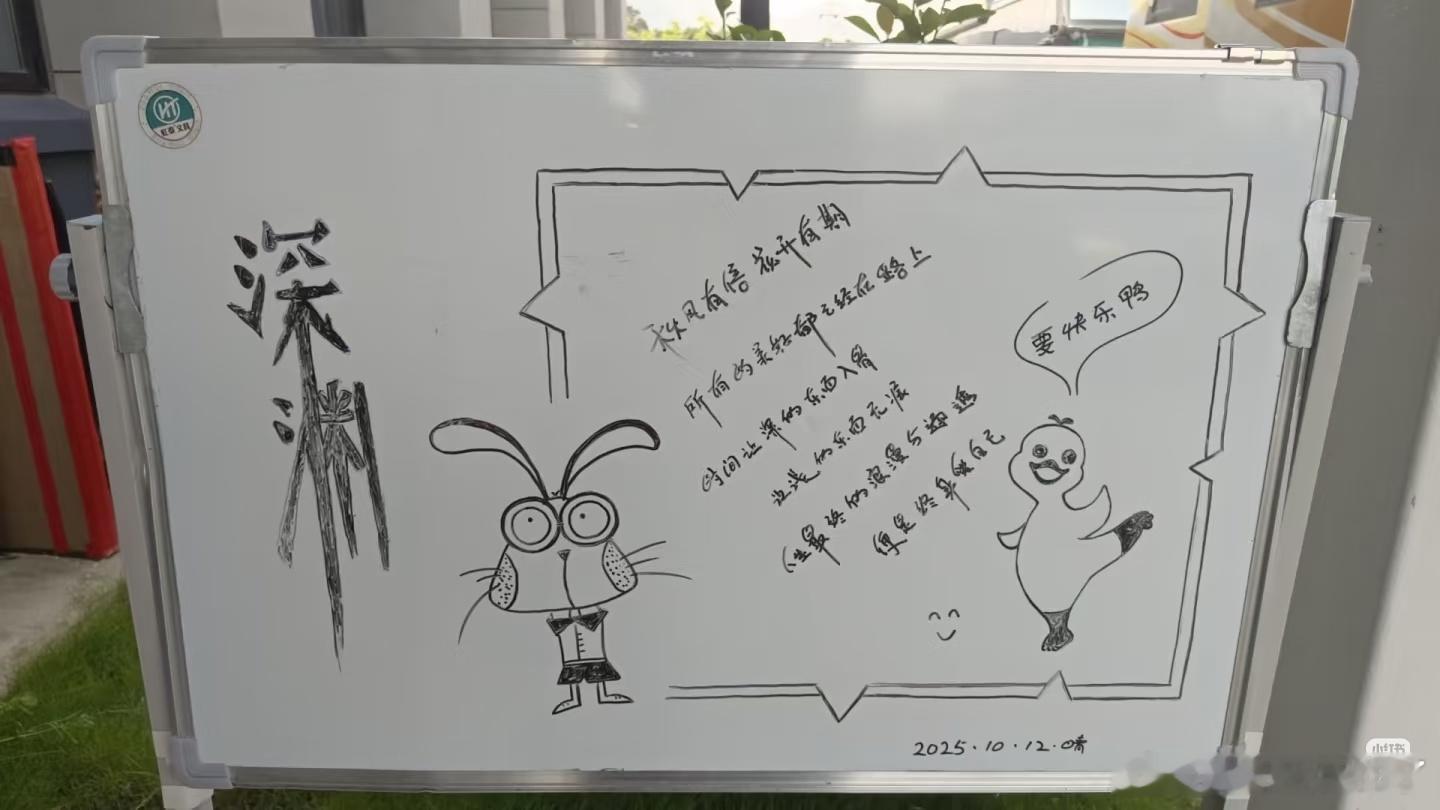 HT
文具
深渊
秋风有信 花开有期
所有的美好都已经在路上
时间让深的东西入骨
让浅的东西无痕
人生最终的浪漫与通透
便是终身自己
要快乐鸭
2025·10·12·晴
小红书